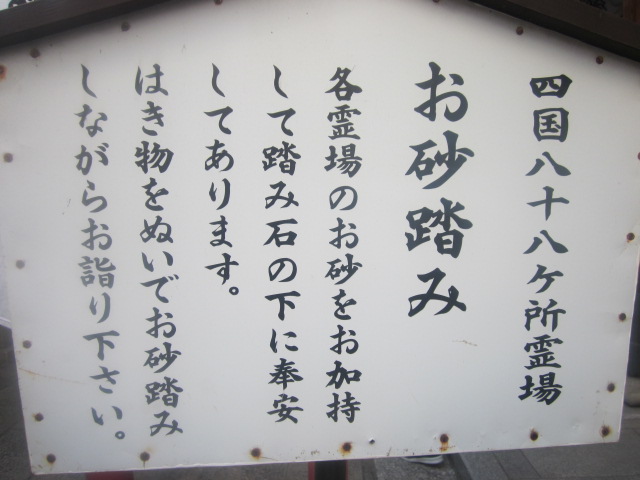 四国八十八ケ所霊場
お砂踏み
各霊場のお砂をお加持
して踏み石の下に奉安
してあります。
はき物をぬいでお砂踏み
しながらお詣り下さい。